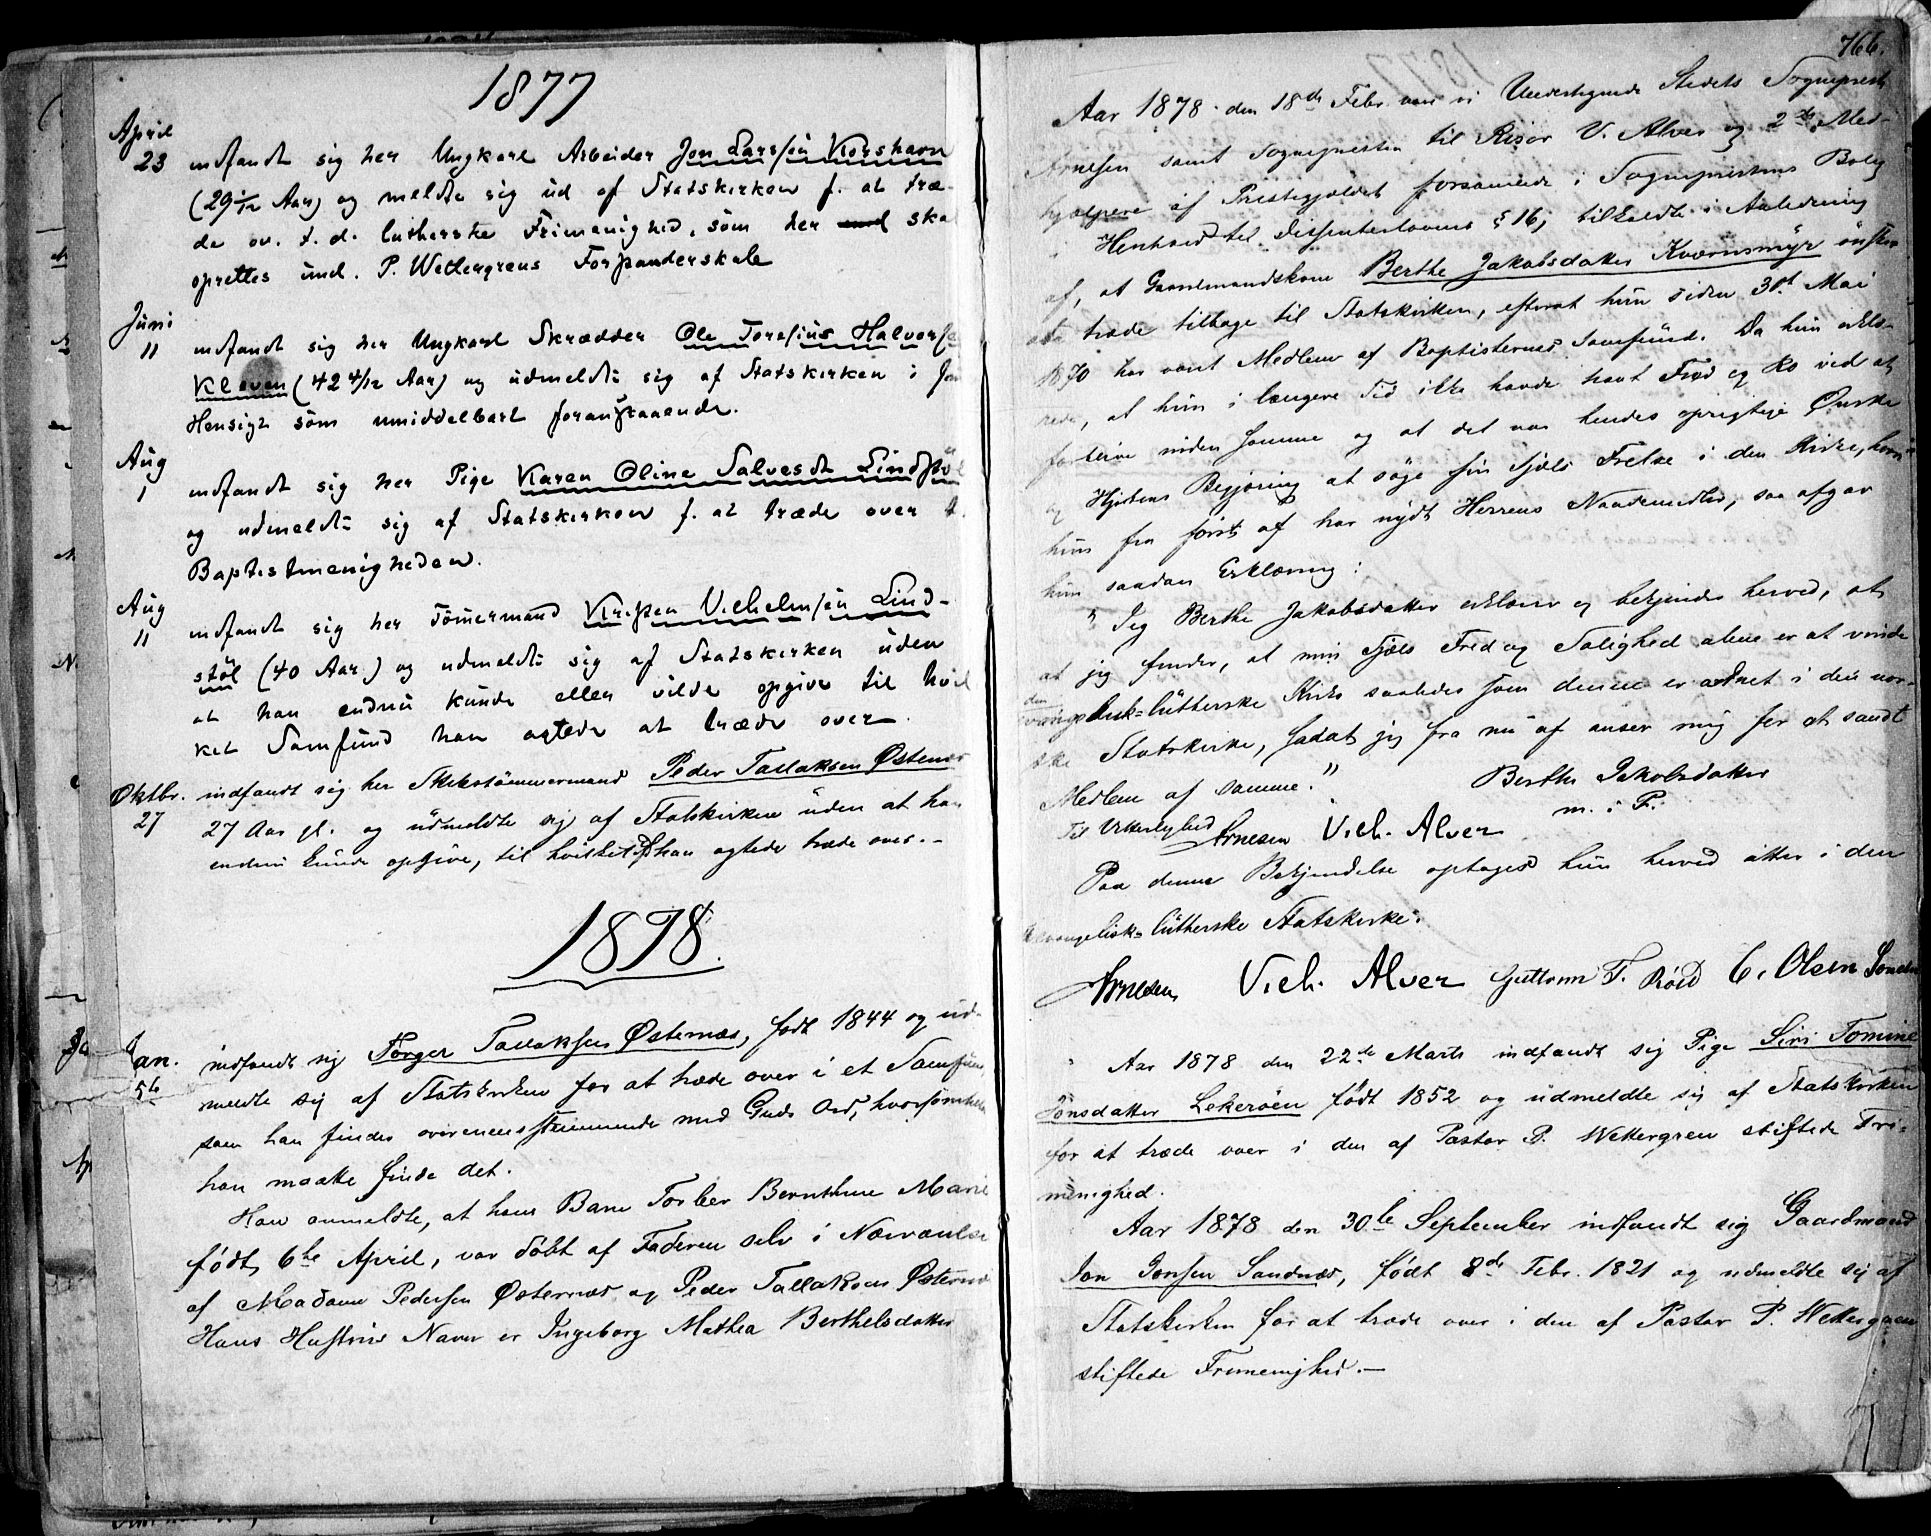 1877
April
23 indfandt sig her Ungkarl Arbeider Jon Larssen Korshavn
(29 1/12 Aar) og meldte sig ud af Statskirken f. at træ-
de ov. t. d. lutherske Frimenighed, som her skal
oprettes und. P. Wettergrens Forstanderskab
Juni
11 indfandt sig her Ungkarl Skrædder Ole Torasius Halvorse
Kleven (42 4/12 Aar) og udmeldte sig af Statskirken i
Hensigt som umiddelbart foranstaaende.
Aug
1 indfandt sig her Pige Karen Oline Salvesdt Lindstøl
og udmeldte sig af Statskirken f. at træde over t.
Baptistmenigheden.
Aug
11 indfandt sig her Tømermand Vilhelmsen Lind-
støl (40 Aar) og udmeldte sig af Statskirken uden
at han endnu kunde eller vilde opgive til hvil
ket Samfund han agtede at træde over.
Oktbr. indfandt sig her Skibstømmermand Peder Tallaksen Østenæs
27 27 Aar gl. og udmeldte sig af Statskirken uden at han
endnu kunde opgive, til hvilket Sf han agtede træde over.-
1878.
Jan. indfandt sig Torger Tallaksen Østernæs, født 1844 og ud-
5te meldte sig af Statskirken for at træde over i et Samfund,
som han finder overensstemmende med Guds Ord, hvorsomhelst
han maatte finde det.
Han anmeldte, at hans Barn Torber Bernthine Marie
født 6te April, var døbt af Faderen selv i Nærværelse
af Madam Pedersen Østernæs og Peder Tallaksen Østernæs
Hans Hustrus Navn er Ingeborg Mathea Berthelsdatter
766.
Aar 1878 den 18de Febr. vare vi Undertegnede Stedets Sogneprest
Arnesen samt Sognepresten til Risør V. Alver og 2de Med-
hjælpere af Prestegjeldet forsamlede i Sogneprestens Bolig
i Henhold til Dissenterlovens § 16, tilkaldte i Anledning
af, at Gaardmandskone Berthe Jakobsdatter Kværnsmyr ønsker
at træde tilbage til Statskirken, efterat hun siden 31te Mai
1870 har været Medlem af Baptisternes Samfund. Da hun erklæ-
rede, at hun i længere Tid ikke havde havt Fred og Ro ved at
forblive inden samme og at det var hendes oprigtige Ønske
og Hjertens Begjæring at søge sin Sjæls Frelse i den Kirke, hvori
hun fra først af har nydt Herrens Naademidler, saa afgav
hun saadan Erklæring:
" Jeg Berthe Jakobsdatter erklærer og bekjender herved, at
at jeg finder, at min Sjæls Fred og Salighed alene er at vinde i
den evangelisk-lutherske Kirke saaledes som denne er ordnet i den nor-
ske Statskirke, saa at jeg fra nu af anser mig for et sandt
Medlem af samme."
Berthe Jakobsdatter
m. i P.
Til Vitterlighed
Arnesen Vilh. Alver
Paa denne Bekjendelse optages hun herved atter i den
evangelisk-lutherske Statskirke.
Arnesen, Vilh. Alver Guttorm T. Røed C. Olsen
Aar 1878 den 22de Marts indfandt sig Pige Siri Tomine
Jonsdatter Lekerøen født 1852 og udmeldte sig af Statskirken
for at træde over i den af Pastor P. Wettergren stiftede Fri-
menighed.
Aar 1878 den 30te September indfandt sig Gaardmand
Jon Jonsen Sandnæs, født 8de Febr. 1821 og udmeldte sig af
Statskirken for at træde over i den af Pastor P. Wettergren
stiftede Frimenighed.—